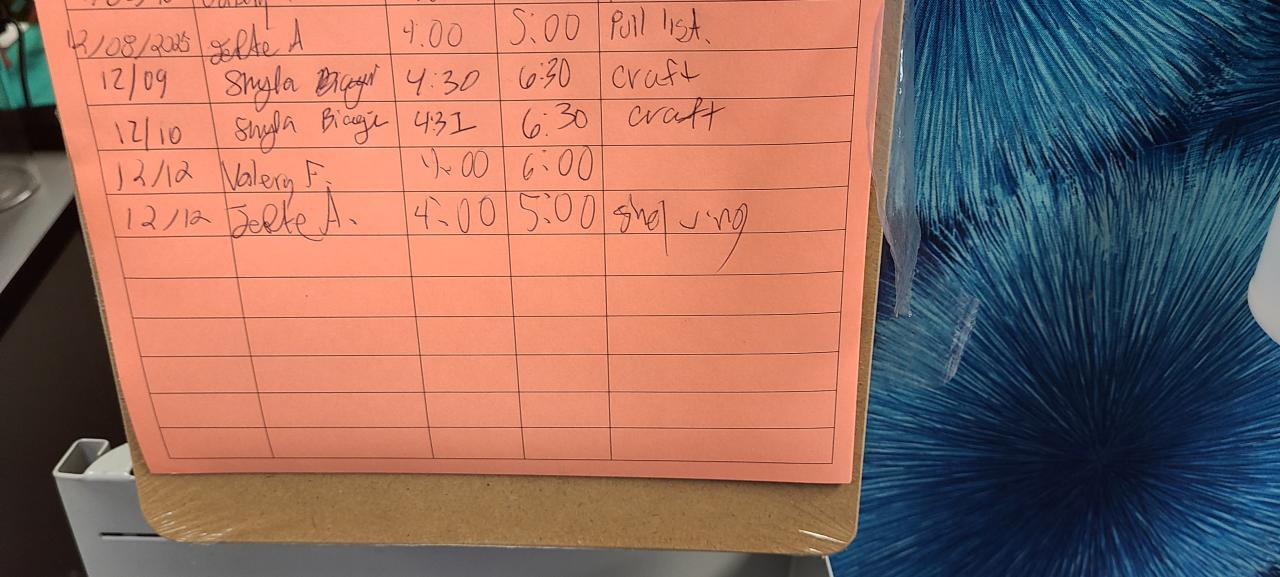 12/08/2025 Jefte A 4:00 5:00 Pull list.
12/09 Shyla 4:30 6:30 craft
12/10 Shyla 4:31 6:30 craft
12/12 Valery F. 4:00 6:00
12/12 Jefte A. 4:00 5:00 shelving